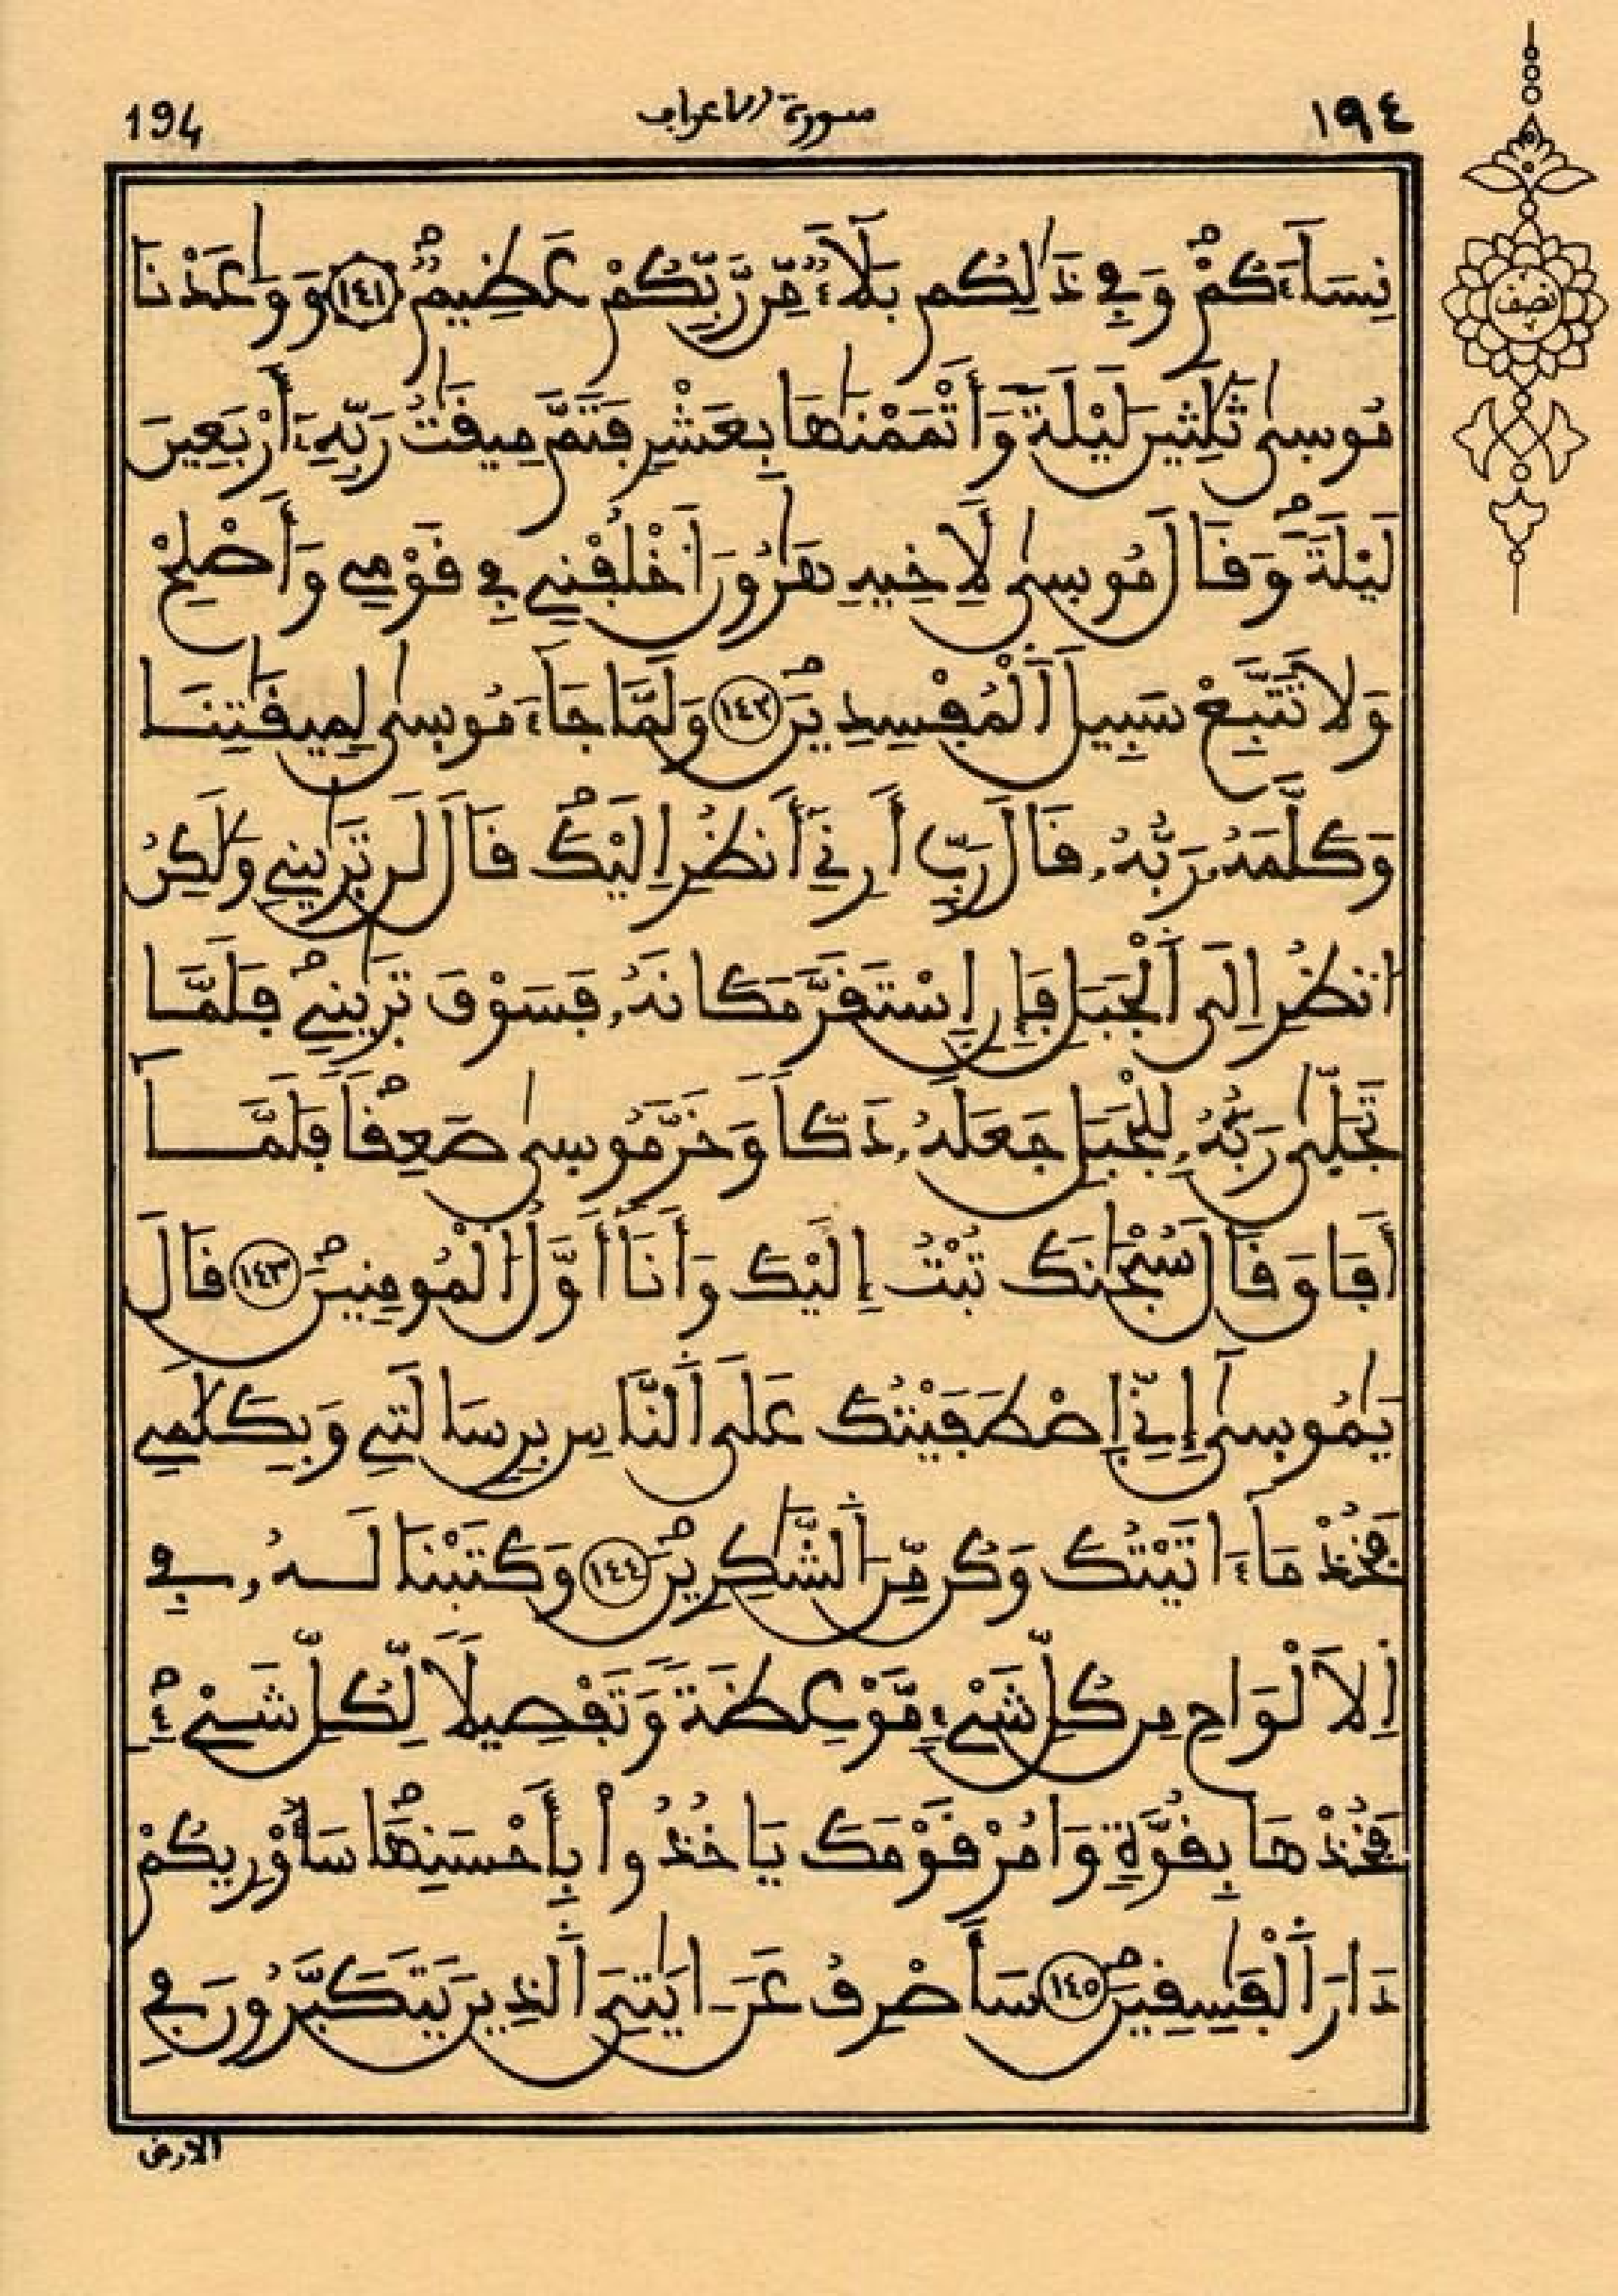 194 سورة الاعراف ١٩٤
نصف
نِسَآءَكُمْ وَفِي ذَٰلِكُم بَلَآءٌ مِّن رَّبِّكُمْ عَظِيمٌ ١٤١ وَوَٰعَدْنَا
مُوسىٰ ثَلَٰثِينَ لَيْلَةً وَأَتْمَمْنَٰهَا بِعَشْرٍ فَتَمَّ مِيقَٰتُ رَبِّهِۦٓ أَرْبَعِينَ
لَيْلَةً وَقَالَ مُوسىٰ لِأَخِيهِ هَٰرُونَ اَخْلُفْنِي فِي قَوْمِي وَأَصْلِحْ
وَلَا تَتَّبِعْ سَبِيلَ اَلْمُفْسِدِينَ ١٤٢ وَلَمَّا جَآءَ مُوسىٰ لِمِيقَٰتِنَا
وَكَلَّمَهُۥ رَبُّهُۥ قَالَ رَبِّ أَرِنِيٓ أَنظُرِ اِلَيْكَ قَالَ لَن تَرَىٰنِي وَلَٰكِنُ
اُنظُرِ اِلَى اَلْجَبَلِ فَإِنِ اِسْتَقَرَّ مَكَانَهُۥ فَسَوْفَ تَرَىٰنِي فَلَمَّا
تَجَلّىٰ رَبُّهُۥ لِلْجَبَلِ جَعَلَهُۥ دَكّاً وَخَرَّ مُوسىٰ صَعِقاً فَلَمَّآ
أَفَاقَ قَالَ سُبْحَٰنَكَ تُبْتُ إِلَيْكَ وَأَنَآ أَوَّلُ اُلْمُومِنِينَ ١٤٣ قَالَ
يَٰمُوسىٰٓ إِنِّي اِصْطَفَيْتُكَ عَلَى اَلنَّاسِ بِرِسَالَتِي وَبِكَلَٰمِي
فَخُذْ مَآ ءَاتَيْتُكَ وَكُن مِّنَ اَلشَّٰكِرِينَ ١٤٤ وَكَتَبْنَا لَهُۥ فِي
اِلَالْوَاحِ مِن كُلِّ شَيْءٍ مَّوْعِظَةً وَتَفْصِيلاً لِّكُلِّ شَيْءٍ
فَخُذْهَا بِقُوَّةٍ وَامُرْ قَوْمَكَ يَاخُذُواْ بِأَحْسَنِهَا سَأُوْرِيكُمْ
دَارَ اَلْفَٰسِقِينَ ١٤٥ سَأَصْرِفُ عَنَ اٰيَٰتِيَ اَلذِينَ يَتَكَبَّرُونَ فِي
الارض